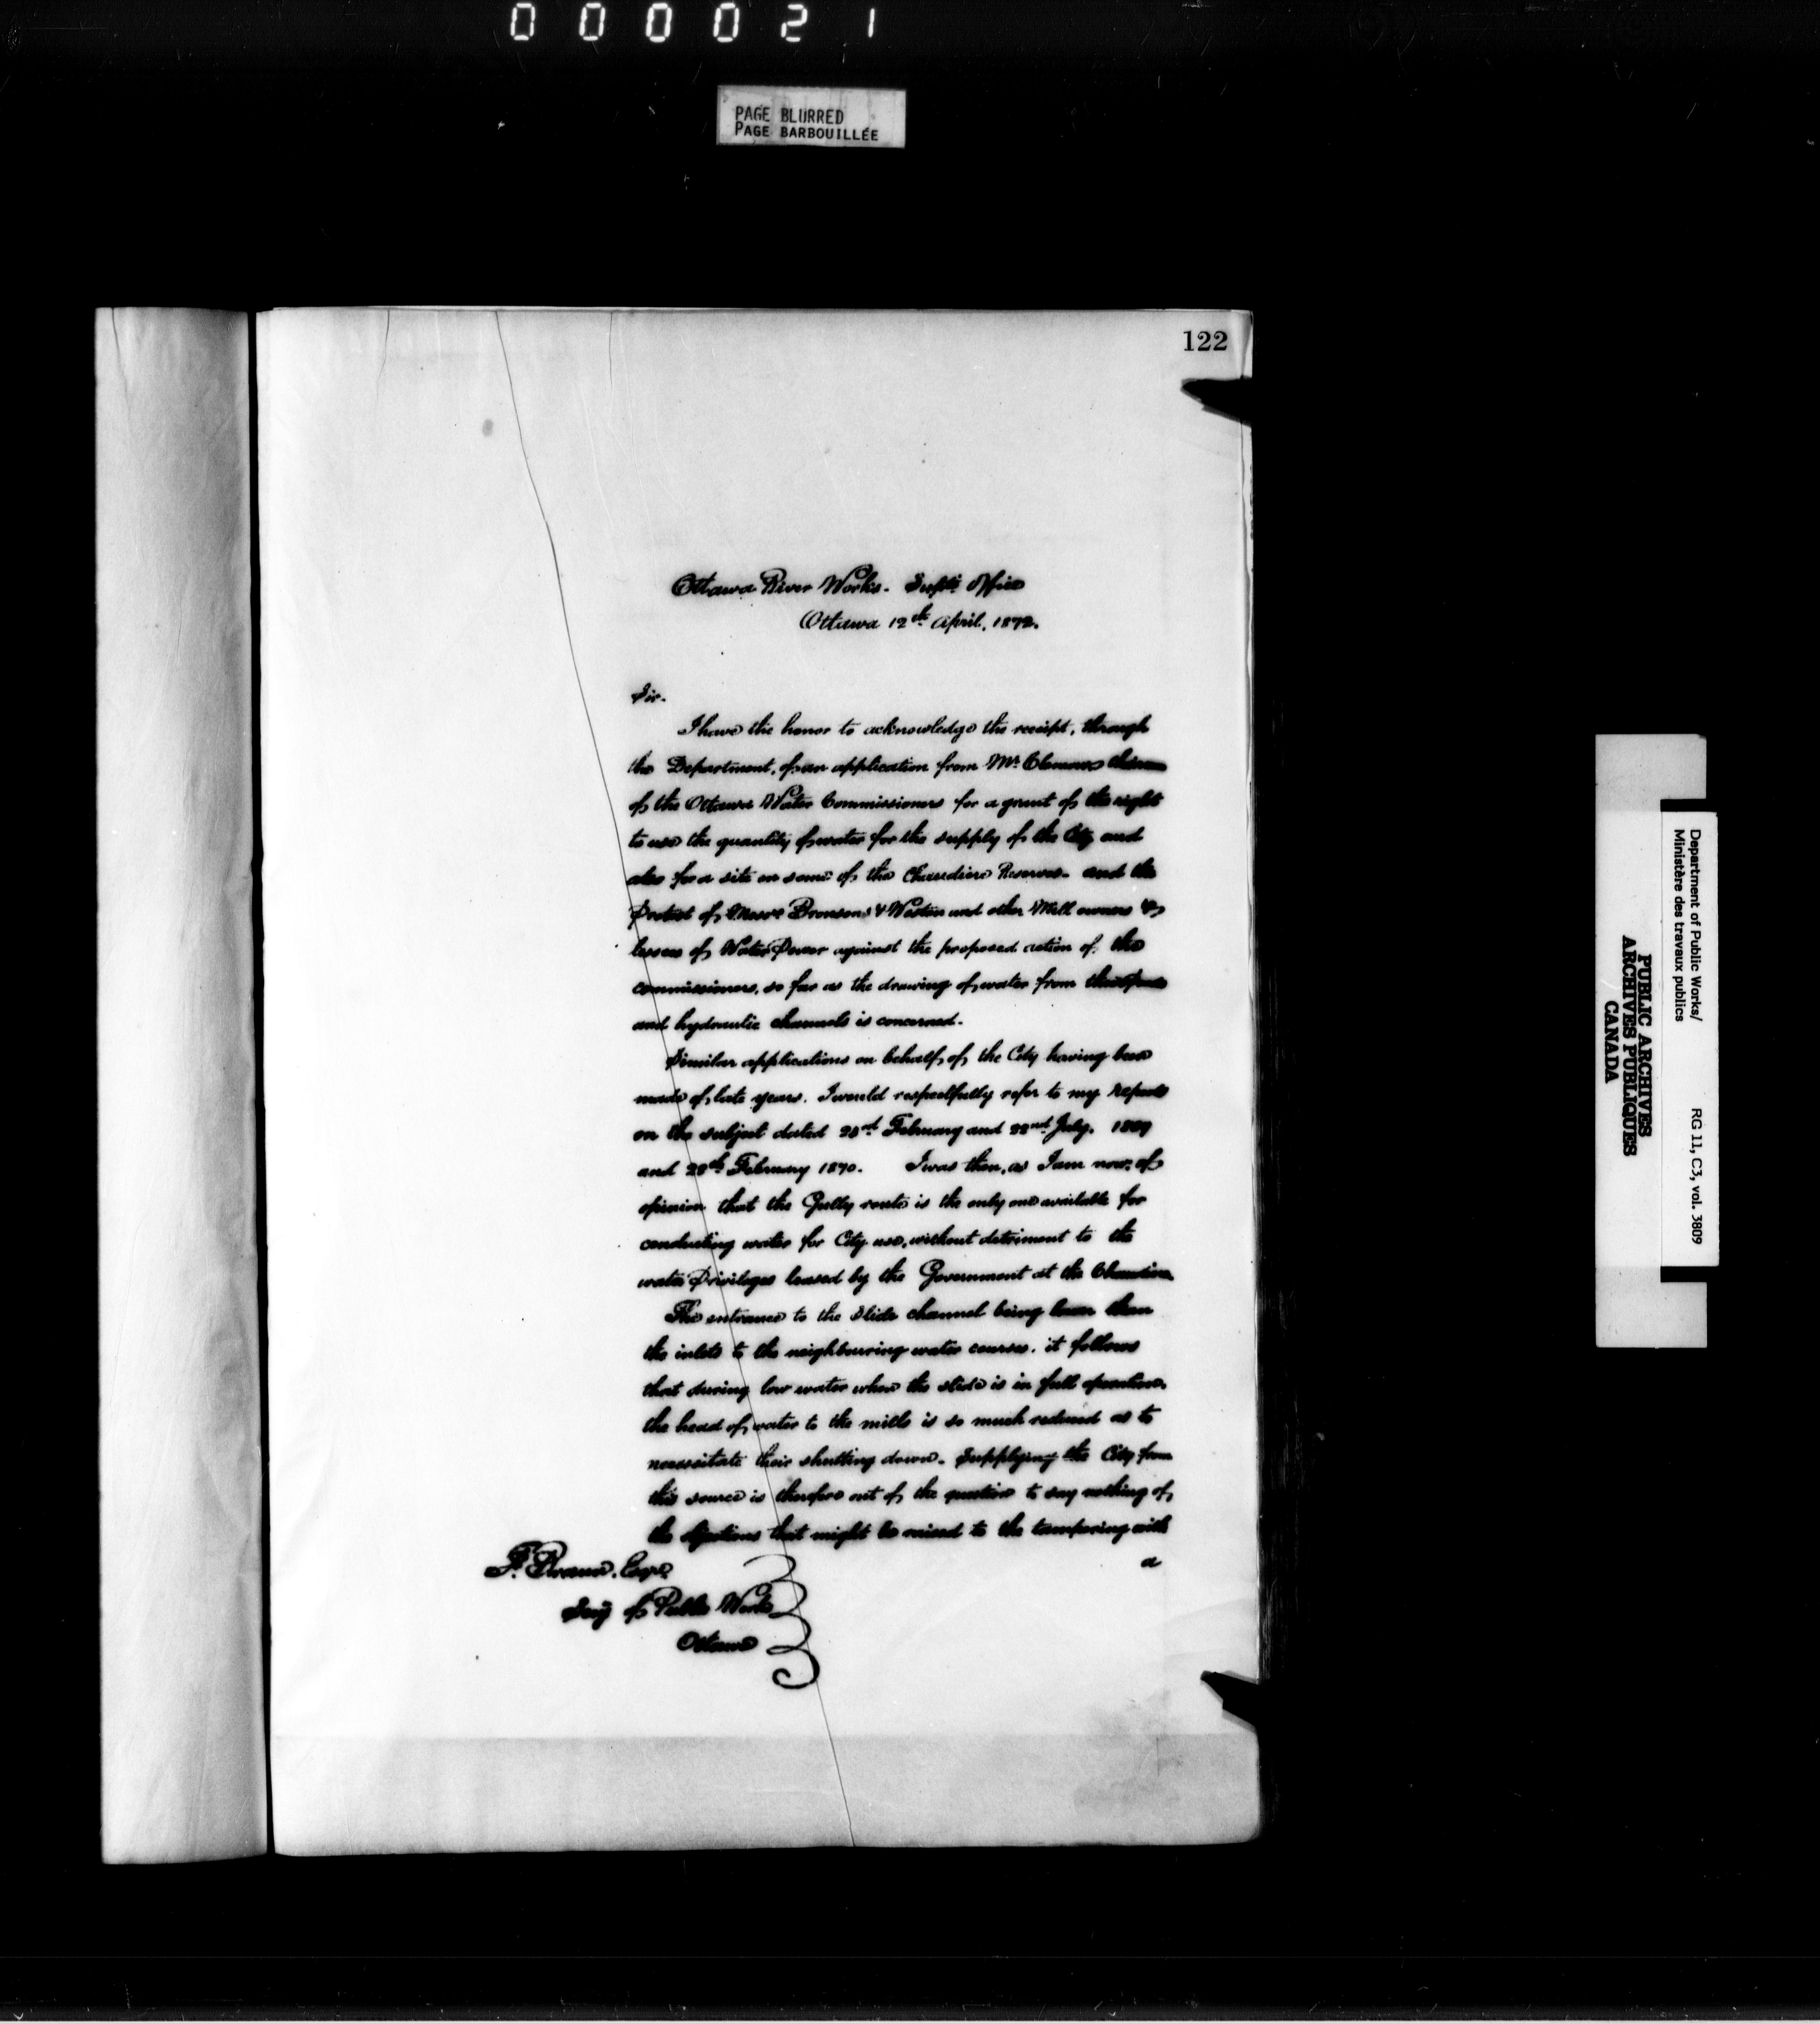 000021
PAGE BLURRED
PAGE BARBOUILLÉE
122
Ottawa River Works. Supt's Office
Ottawa 12th April, 1872.
Sir.
I have the honor to acknowledge the receipt, through
the Department, of an application from Mr. Clemow
of the Ottawa Water Commissioners for a grant of the right
to use the quantity of water for the supply of the City and
also for a site on some of the Chaudiere Reserves. and the
Protest of Messrs Bronsons & Weston and other Mill owners &
lessees of Water Power against the proposed action of the
commissioners, so far as the drawing of water from
and hydraulic channels is concerned.
Similar applications on behalf of the City having been
made of late years. I would respectfully refer to my reports
on the subject dated February and 22nd July. 1869
and 28th February 1870. I was then, as I am now, of
opinion that the Gully route is the only one available for
conducting water for City use, without detriment to the
water Privileges leased by the Government at the Chaudiere.
The entrance to the Slide channel being lower than
the inlets to the neighbouring water courses. it follows
that during low water when the slide is in full operation,
the head of water to the mills is so much reduced as to
necessitate their shutting down. Supplying the City from
this source is therefore out of the question to say nothing of
the objections that might be raised to the tampering with
a
F. Braun. Esqre.
Secy of Public Works
Ottawa
Department of Public Works/
Ministère des travaux publics
RG 11, C3, vol. 3809
PUBLIC ARCHIVES
ARCHIVES PUBLIQUES
CANADA